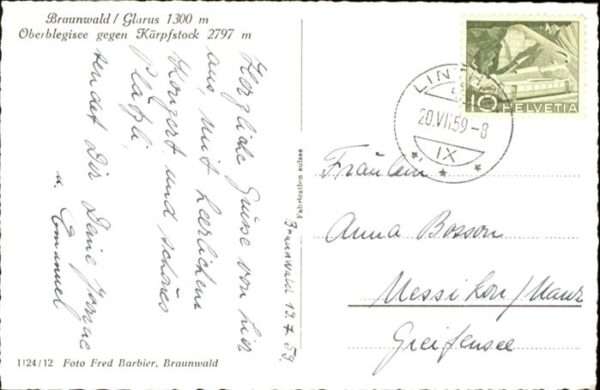 Braunwald / Glarus 1300 m
Oberblegisee gegen Kärpfstock 2797 m
Herzliche Grüsse von hier
aus mit herrlichem
Konzert und schönes
Plätzli
sendet Dir Deine
u. Emanuel
Braunwald 19.7.59.
Fabrication suisse
10
HELVETIA
20.VII.59-8
IX
Fräulein
Anna Bosson
Messikon/
Greifensee
1124/12 Foto Fred Barbier, Braunwald